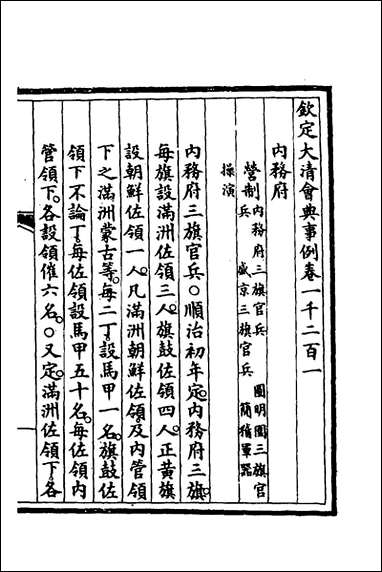 欽定大清會典事例卷一千二百一
內務府
營制內務府三旗官兵 圓明園三旗官
兵 盛京三旗官兵 簡稽軍器
操演
內務府三旗官兵○順治初年定。內務府三旗。
每旗設滿洲佐領三人。旗鼓佐領四人。正黃旗
設朝鮮佐領一人。凡滿洲朝鮮佐領及內管領
下之滿洲蒙古等。每二丁設馬甲一名。旗鼓佐
領下不論丁。每佐領設馬甲五十名。每佐領內
管領下。各設領催六名。○又定。滿洲佐領下。各